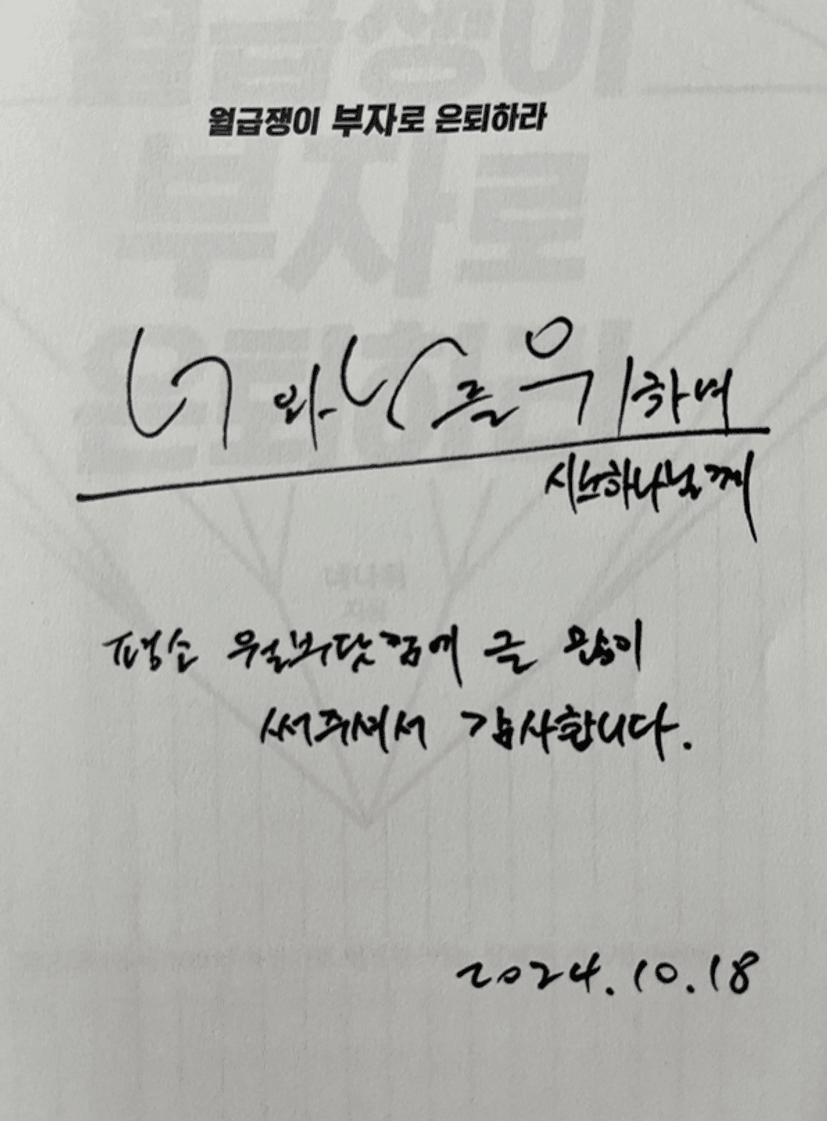 월급쟁이 부자로 은퇴하라
너와 나를 위하여
시난하나님께
평소 월부닷컴에 글 많이
써주셔서 감사합니다.
2024.10.18